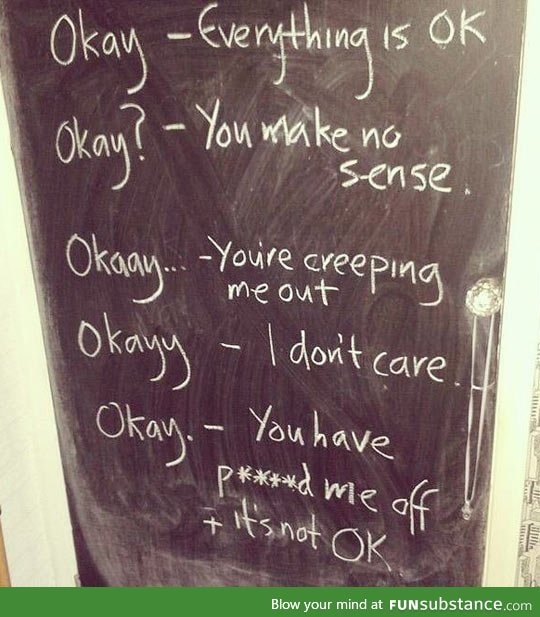 Okay – Everything is OK
Okay? – You make no
sense.
Okaay... – You're creeping
me out
Okayy – I don't care.
Okay. – You have
p****d me off
+ it's not OK
Blow your mind at FUNsubstance.com